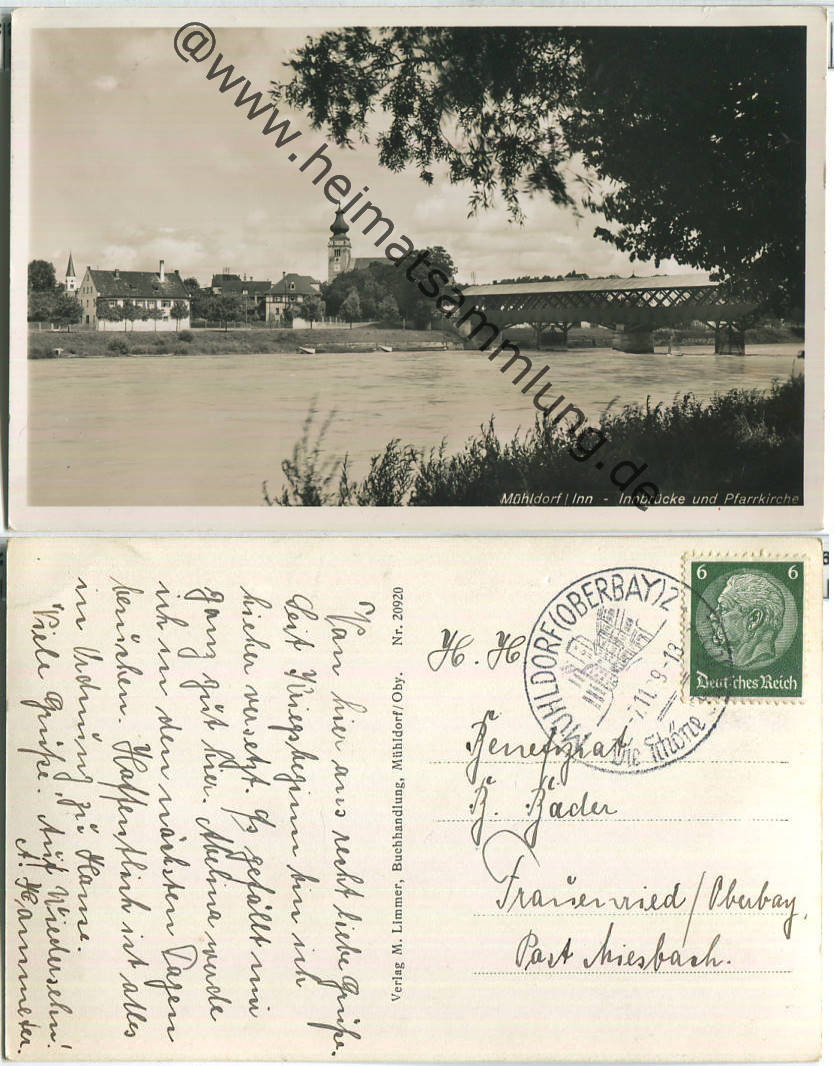 @www.heimatsammlung.de
Mühldorf/Inn - Innbrücke und Pfarrkirche
Von hier aus recht liebe Grüße.
Seit Kriegsbeginn bin ich
hieher versetzt. Es gefällt mir
ganz gut hier. Abelina werde
ich in den nächsten Tagen
besuchen. Hoffentlich ist alles
in Ordnung zu Hause.
Viele Grüße. Auf Wiedersehn!
A.
Verlag M. Limmer, Buchhandlung, Mühldorf/Oby. Nr. 20920
MÜHLDORF (OBERBAY) 2
.11.9-13
Die Schöne
6 6
Deutsches Reich
H. H.
Benefiziat
B. Bäder
Frauenried/Oberbay,
Post Miesbach.